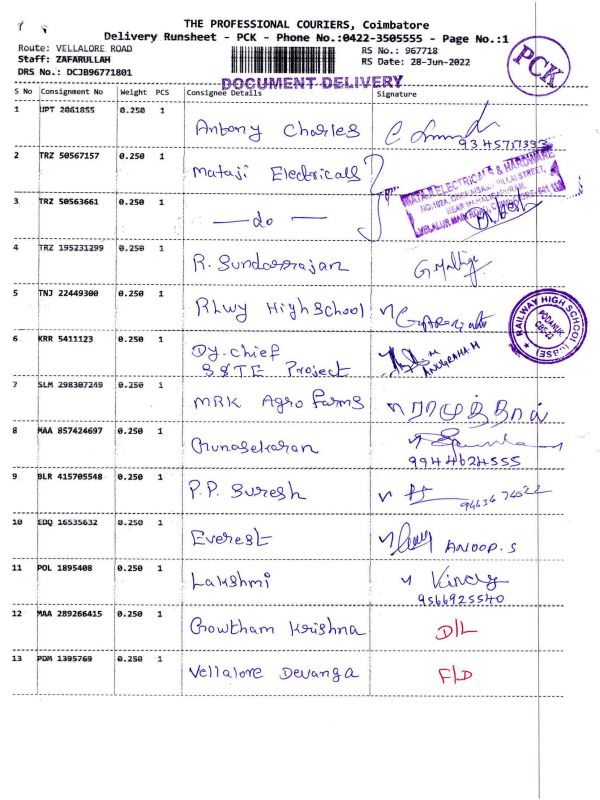 THE PROFESSIONAL COURIERS, Coimbatore
Delivery Runsheet - PCK - Phone No.:0422-3505555 - Page No.:1
Route: VELLALORE ROAD RS No.: 967718
Staff: ZAFARULLAH RS Date: 28-Jun-2022
DRS No.: DCJB96771801
PCK
DOCUMENT DELIVERY
S No Consignment No Weight PCS Consignee Details Signature
1 UPT 2061855 0.250 1 Antony Charles
9345717333
2 TRZ 50567157 0.250 1 Mataji Electricals
MATAJI ELECTRICALS & HARDWARE
3 TRZ 50563661 0.250 1 — do —
4 TRZ 195231299 0.250 1 R. Sundarrajan
5 TNJ 22449300 0.250 1 RLwy High School
RAILWAY HIGH SCHOOL (CBSE)
PODANUR
6 KRR 5411123 0.250 1 Dy. chief
S&TE Project ANUGRAHA.M
7 SLM 298307249 0.250 1 MRK Agro farms
8 MAA 857424697 0.250 1 Gunasekaran
9944624555
9 BLR 415705548 0.250 1 P.P. Suresh
10 EDQ 16535632 0.250 1 Everest ANOOP.S
11 POL 1895408 0.250 1 Lakshmi
9566925540
12 MAA 289266415 0.250 1 Gowtham Krishna D/L
13 PDM 1395769 0.250 1 Vellalore Devanga F/D